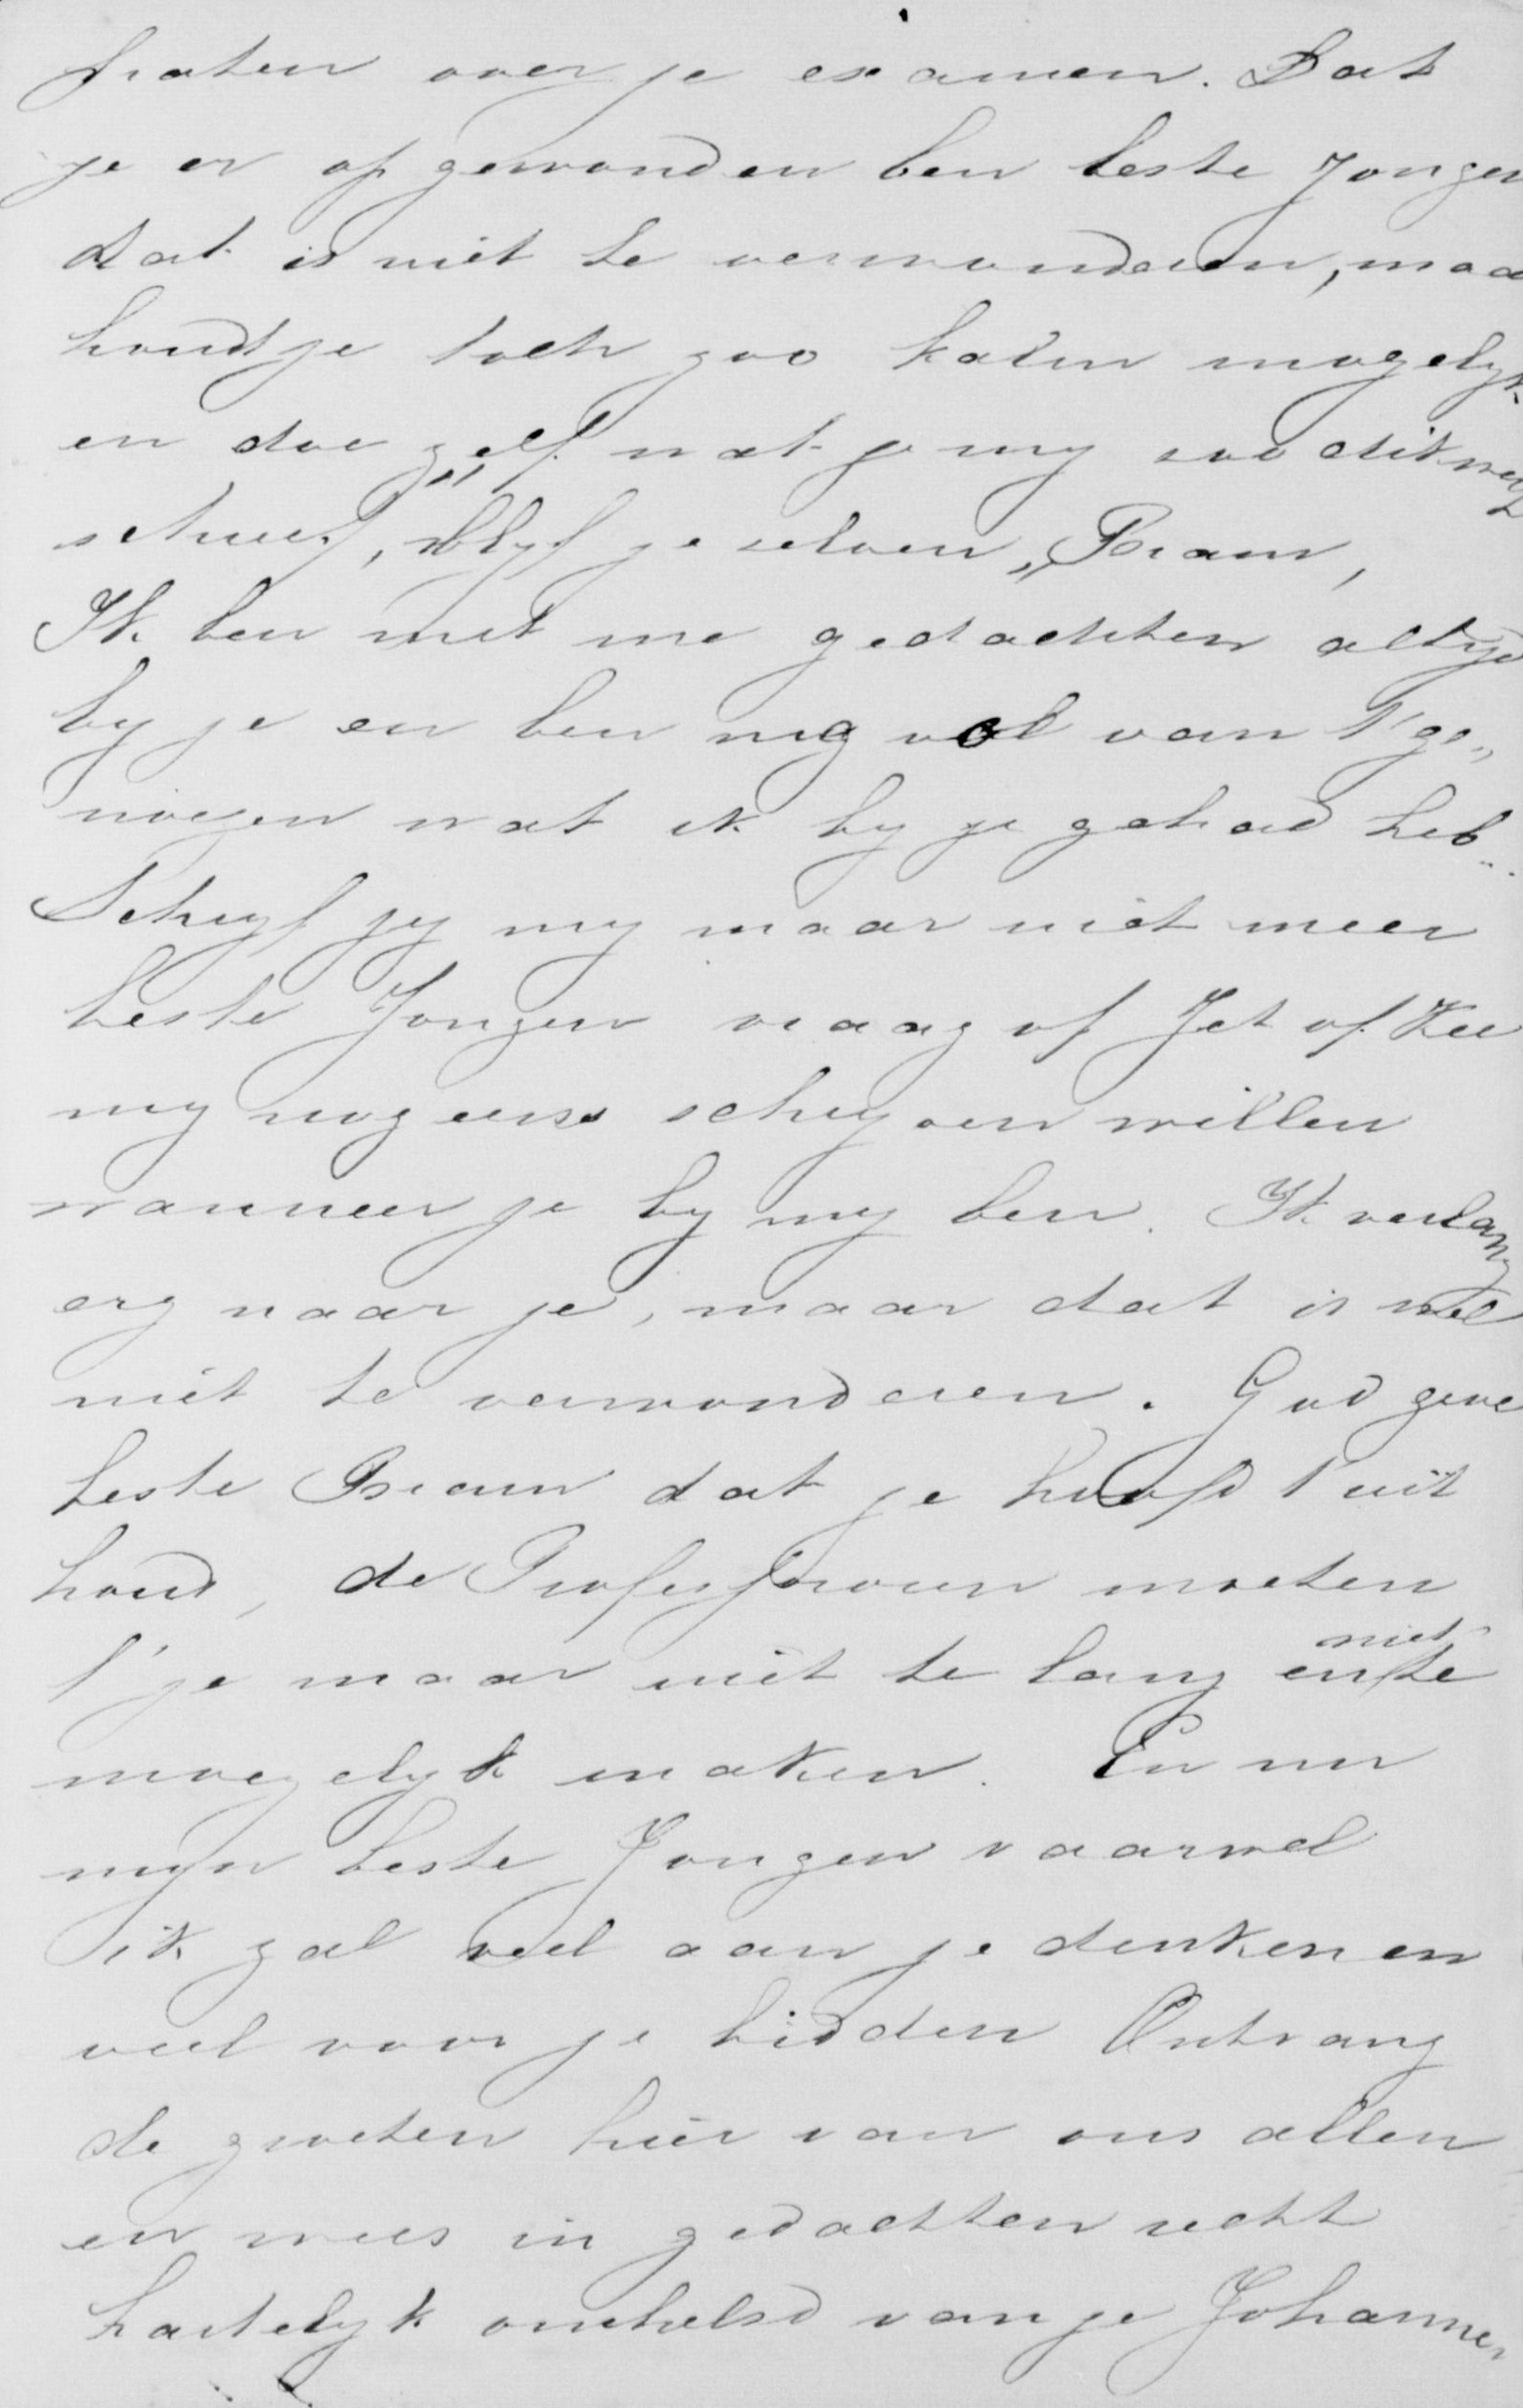 praten over je examen. Dat
je er opgewonden ben beste Jongen
dat is niet te verwonderen, maa
houd je toch zoo kalm mogelyk
en doe zelf wat je my zoo dikwerf
schreef, "blyf je zelven" Bram,
Ik ben met me gedachten altyd
by je en ben nog vol van 't ge„
noegen wat ik by je gehad heb.
Schryf jy my maar niet meer
beste Jongen vraag of Jet of Kee
my nog eens schryven willen
wanneer je by my ben. Ik verlang
erg naar je, maar dat is wel
niet te verwonderen. God geve
beste Bram dat je hoofd 't uit
houd, de Professoren moeten
't je maar niet te lang en niet te
moeyelyk maken. En nu
myn beste Jongen vaarwel
ik zal veel aan je denken en
veel voor je bidden Ontvang
de groeten hier van ons allen
en wees in gedachten recht
hartelyk omhelsd van je Johanna